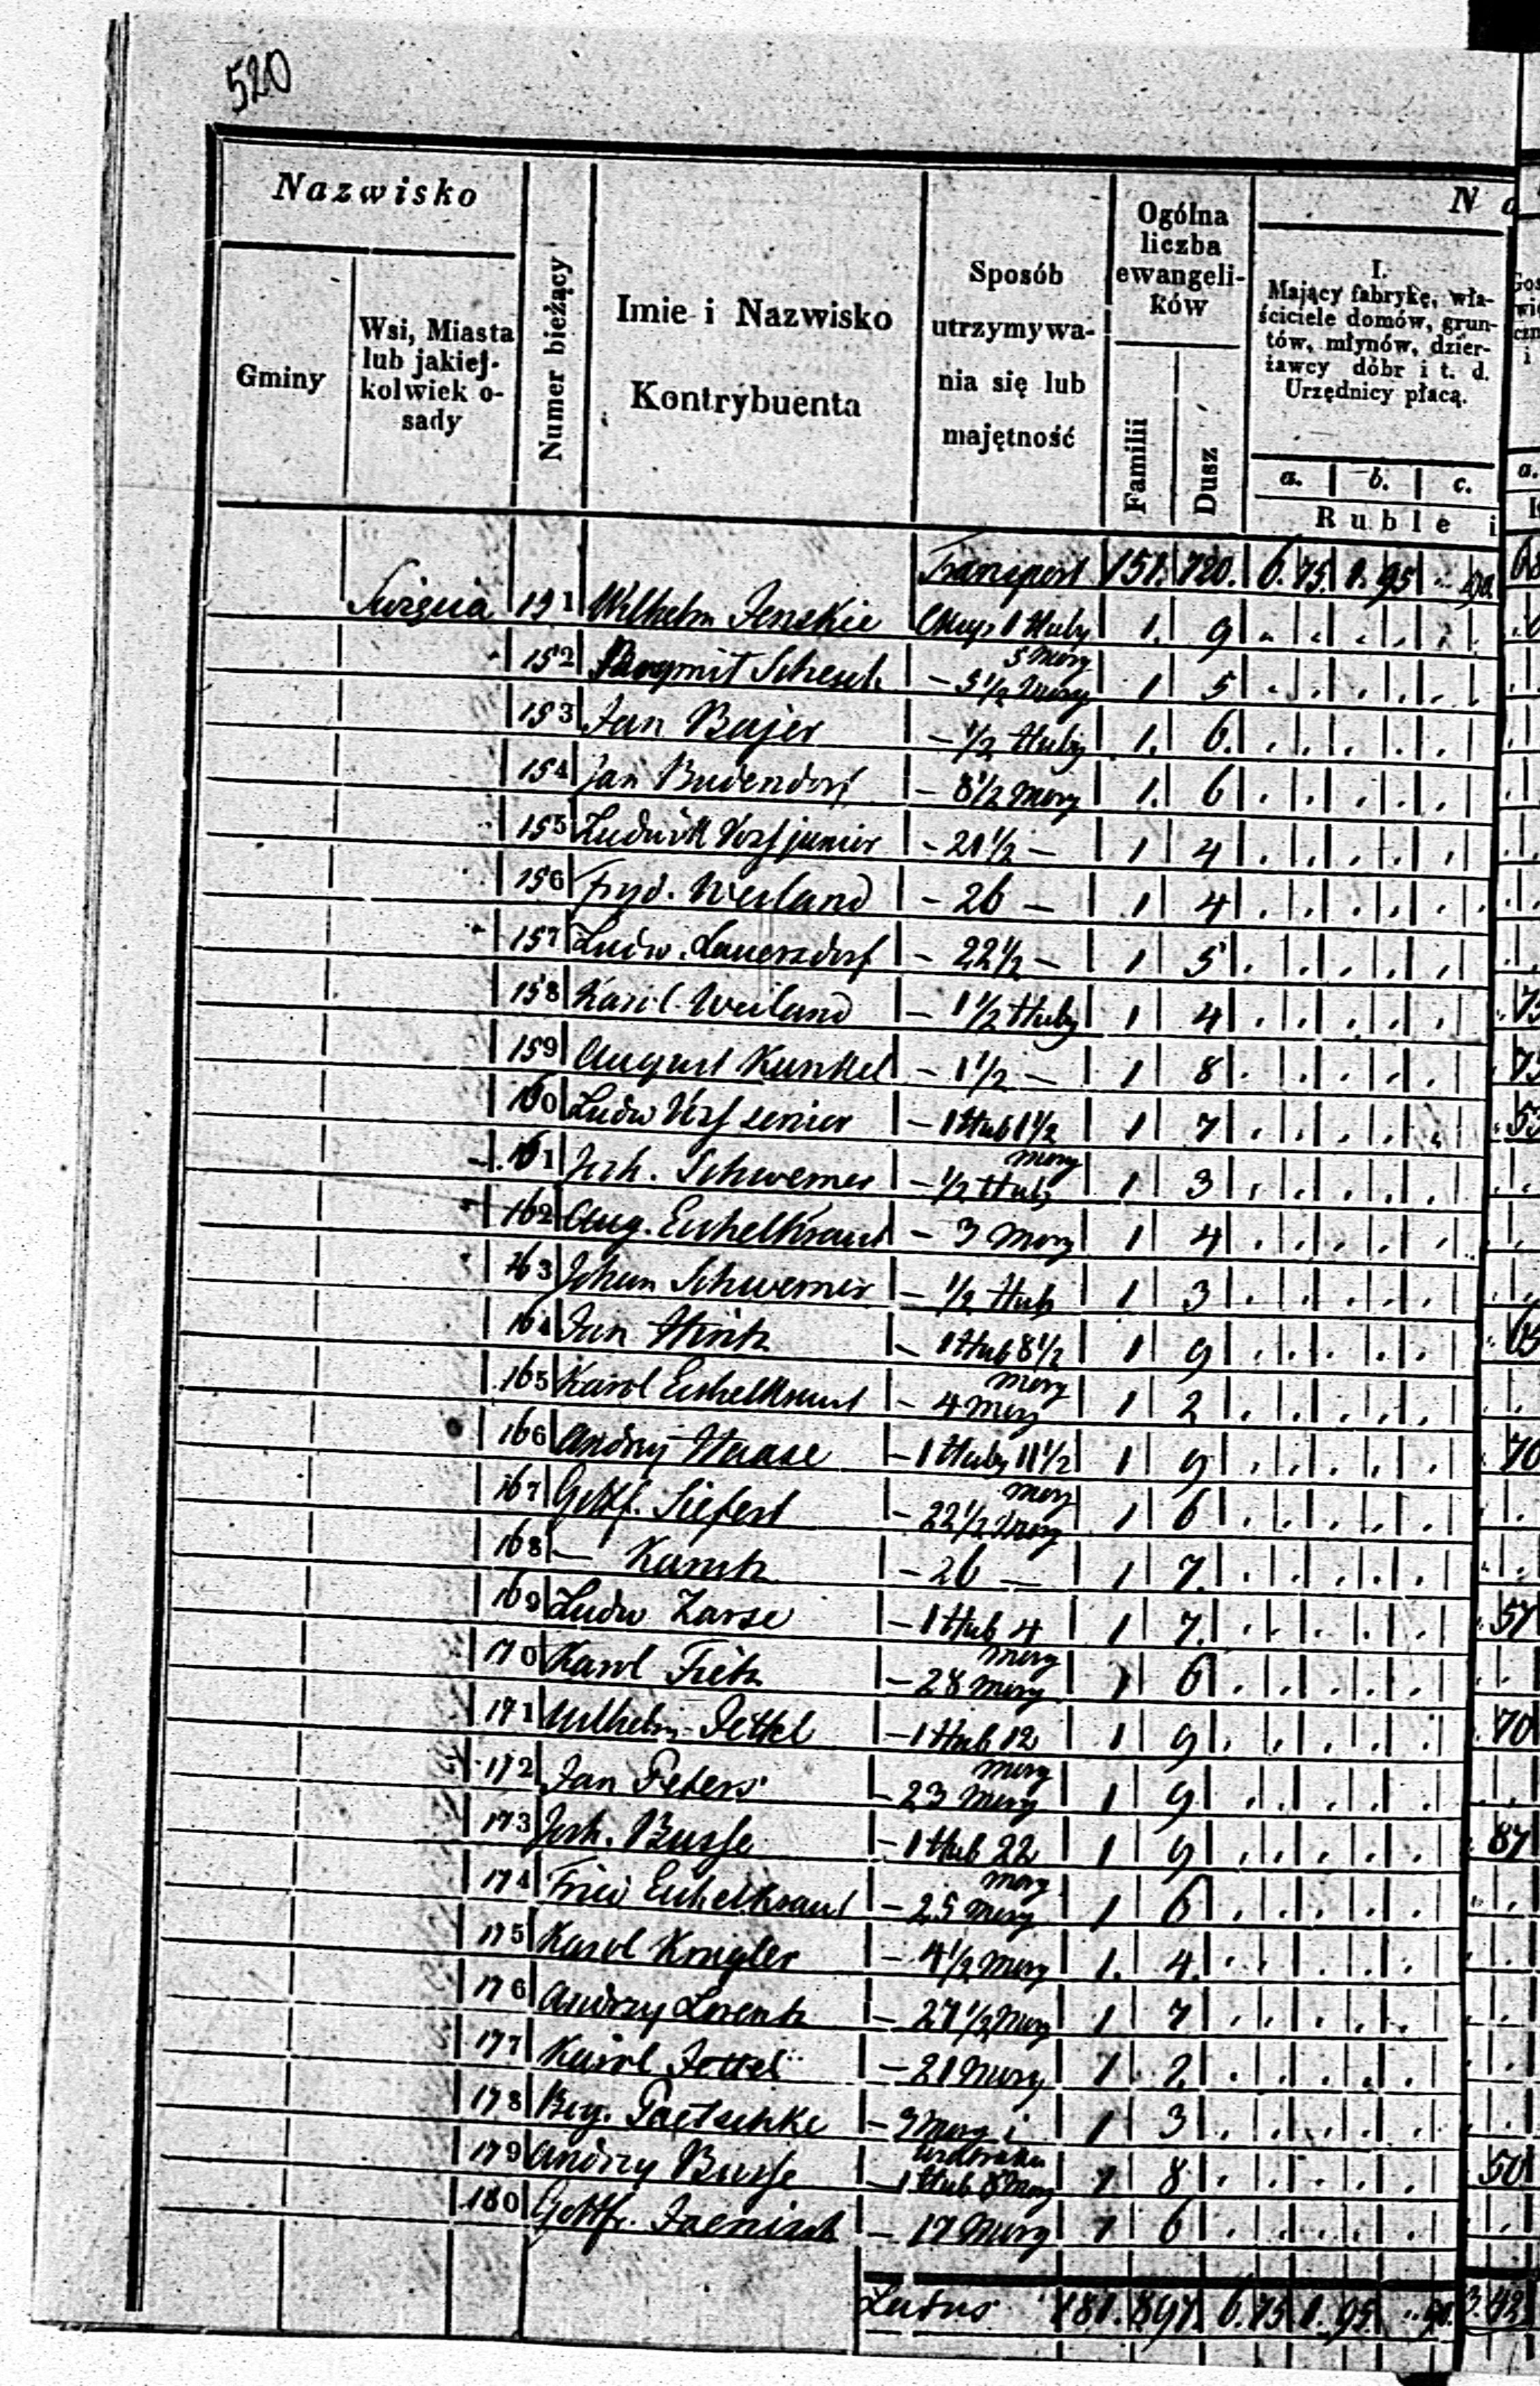 520
Nazwisko
Gminy
Wsi, Miasta
lub jakiej-
kolwiek o-
sady
Numer bieżący
Imie i Nazwisko
Kontrybuenta
Sposób
utrzymywa-
nia się lub
majętność
Ogólna
liczba
ewangeli-
ków
Familii
Dusz
N
I.
Mający fabrykę, wła-
ściciele domów, grun-
tów, młynów, dzier-
żawcy dóbr i t. d.
Urzędnicy płacą.
a. b. c.
Ruble i
Transport 151. 720. 6. 75. 1. 95 .. 90.
151 Wilhelm Jenskie 1 Huby 1. 9
5 morg
152 - 5 1/2 morg 1 5
153 Jan Bajer - 1/2 Huby 1. 6.
154 Jan Budendorf - 8 1/2 morg 1. 6
155 Ludwik junior - 21 1/2 - 1 4
156 Fryd. Weiland - 26 - 1 4
157 Ludw. Lauersdorf - 22 1/2 - 1 5
158 Karol Weiland - 1 1/2 Huby 1 4 75
159 August Kunkel - 1 1/2 - 1 8 75
160 Ludw senior - 1 Hub 1 1/2 1 7 53
morg
161 Joh. Schwemer - 1/2 Hub 1 3
162 Aug. Eichelkraut - 3 morg 1 4
163 Johan Schwemer - 1/2 Hub 1 3
164 Jan Hintz - 1 Hub 8 1/2 1 9
morg
165 Karol Eichelkraut - 4 morg 1 2
166 Andrzy Haase - 1 Huby 11 1/2 1 9 70
morg
167 Gottf. Siefert - 22 1/2 morg 1 6
168 - - 26 - 1 7.
169 Ludw Zarse - 1 Hub 4 1 7. 57
morg
170 Karol - 28 morg 1 6
171 Wilhelm Jettel - 1 Hub 12 1 9 70
morg
172 Jan Peters - 23 morg 1 9
173 Joh. Busse - 1 Hub 22 1 9 87
morg
174 Eichelkraut - 25 morg 1 6
175 Karol Krigler - 4 1/2 morg 1. 4.
176 Andrzy Lorentz - 27 1/2 morg 1 7
177 Karol Jettel - 21 morg 1 2
178 Bog. Paetschke - 3 morg i 1 3
179 Andrzy Busse - 1 Hub 8 morg 1 8 50
180 Gottf. Jaenisch - 17 morg 1 6
Latus 181. 897. 6. 75 1. 95. .. 90. 3.42